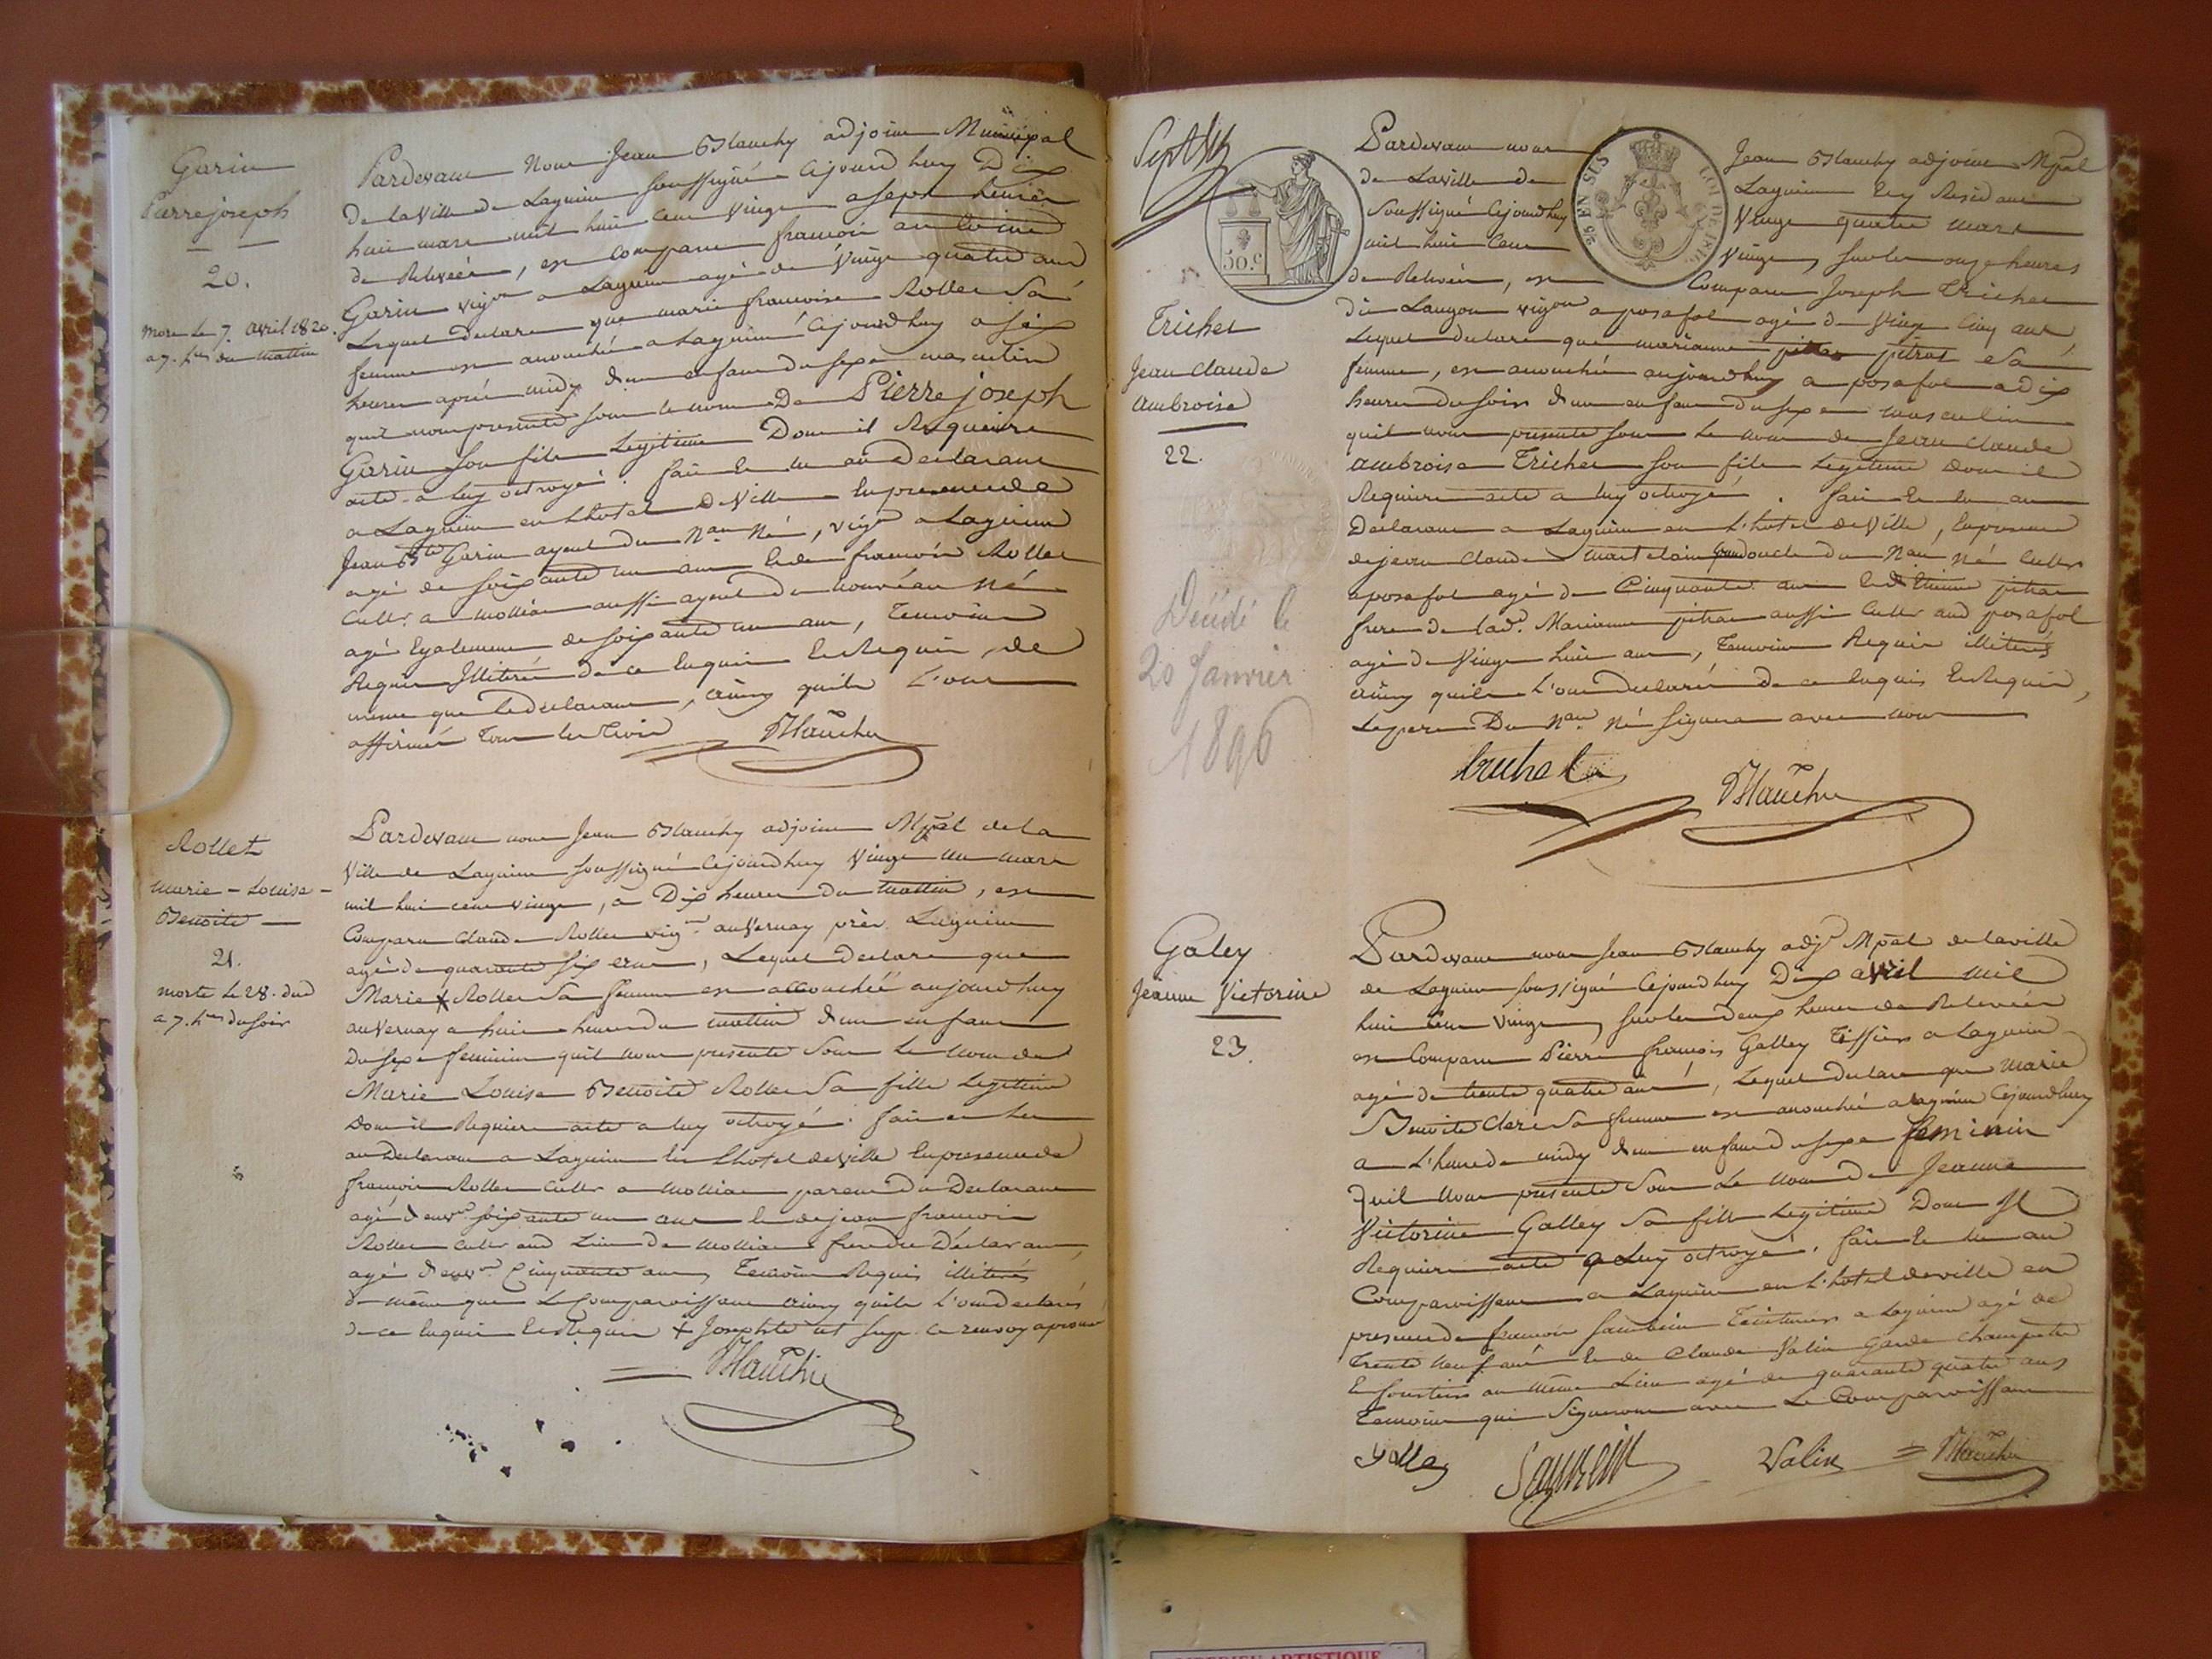 Garin
Pierre joseph
20.
mort le 7. avril 1820.
a 7. h.res du mattin
Pardevant Nous Jean Blanchy adjoint Municipal
de la Ville de Lagnieu soussigné Cejourd'huy Dix
huit mars mil huit cent vingt a sept heures
de Relevée, est comparu francois antoine
Garin vig.on a Lagnieu agé de Vingt quatre ans
Lequel declare que marie francoise Rollet Sa
femme est acouchée a Lagnieu Cejourd'huy a six
heures aprés midy d'un enfant du sexe masculin
quil nous presente sous le nom De Pierre joseph
Garin son fils Legitime Dont il Requiere
acte a luy octroyé. fait & lu au Declarant
a Lagnieu en L'hotel De Ville En presence de
Jean B.te Garin ayeul du N.au Né, vig.on a Lagnieu
agé de soixante un ans & de francois Rollet
Cult.r a mollion aussi ayeul du nouveau Né
agé Egalement de soixante un ans, Temoins
Requis Illiterés de ce Enquis & Requis, de
meme que le declarant, ainsy quils L'ont
affirmé tous les trois
Blanchy
Rollet
marie - Louise -
Benoite
21.
morte le 28. dud
a 7. h.res du soir
Pardevant nous Jean Blanchy adjoint M.pal de la
Ville de Lagnieu soussigné Cejourd'huy Vingt un mars
mil huit cent vingt, a Dix heures du mattin, est
Comparu Claude Rollet vig.on au Vernay près Lagnieu
agé de quarante six ans, Lequel declare que
Marie + Rollet Sa femme est accouchéé aujourd'huy
au Vernay a huit heures du mattin d'un enfant
Du sexe feminin quil nous presente sous Le nom de
Marie Louise Benoite Rollet Sa fille Legitime
Dont il Requiere acte a luy octroyé. fait et lu
au Declarant a Lagnieu En L'hotel de Ville En presence de
francois Rollet Cult.r a mollion parent du Declarant
agé d'env.on soixante un ans & de jean francois
Rollet Cult.r aud Lieu de mollion frere du Déclarant,
agé d'env.on Cinquante ans, Temoins Requis illiterés
de même que Le Comparoissant ainsy quils L'ont declarés
de ce Enquis & Requis + Josephte
Blanchy
Sept
50.c
25 EN SUS
LOI DE 1816
Trichet
Jean claude
ambroise
22.
Décédé le
20 Janvier
1896
Pardevant nous Jean Blanchy adjoint M.pal
de La ville de Lagnieu Y Residant
soussigné Cejourd'huy Vingt quatre mars
mil huit cent Vingt, sur les onze heures
de Relevée, est Comparu Joseph Trichet
dit Langon vig.on a posafol agé de Vingt Cinq ans,
Lequel declare que marianne pitrat Sa
femme, est acouchée aujourd'huy a posafol a dix
heures du soir d'un enfant du sexe masculin
quil nous presente sous Le nom de Jean claude
ambroise Trichet son fils Legitime dont il
Requiere acte a luy octroyé. fait & lu au
Declarant a Lagnieu en L'hotel de Ville, En presence
de jean Claude martelain grand oncle du N.au Né Cult.r
a posafol agé de Cinquante ans & d'Etienne pitrat
frere de lad.e Marianne pitrat aussi Cult.r aud posafol
agé de Vingt huit ans, Temoins Requis illiterés
ainsy quils L'ont declaré de ce Enquis & Requis,
Le pere Du N.au Né Signera avec nous
Blanchy
Galey
Jeanne Victorine
23.
Pardevant nous Jean Blanchy adj.t M.pal de la ville
de Lagnieu soussigné Cejourd'huy Dix avril mil
huit Cent Vingt, sur les Deux heures de Relevée
est Comparu Pierre francois Galley Tissier a Lagnieu
agé de trente quatre ans, Lequel declare que Marie
Benoite Clerc Sa femme est acouchée a Lagnieu Cejourd'huy
a L'heure de midy d'un enfant du sexe feminin
quil Nous presente Sous Le Nom de Jeanne
Victorine Galley Sa fille Legitime Dont Il
Requiere acte a Luy octroyé. fait & lu au
Comparoissant a Lagnieu en L'hotel de ville en
presence de francois Sauvein Teinturier a Lagnieu agé de
Trente neuf ans & de Claude Valin Garde champetre
& forestier au même Lieu agé de quarante quatre ans
Temoins qui Signeront avec Le Comparoissant
Galley Sauvein Valin Blanchy
ARTISTIQUE